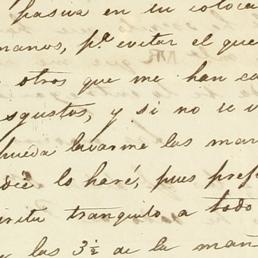 pasiva en tu coloca
manos, pª evitar el que
otros que me han ca
sgustos, y si no te v
pueda lavarme las man
dice lo haré, pues pref
íritu tranquilo a todo
las 3½ de la mañ